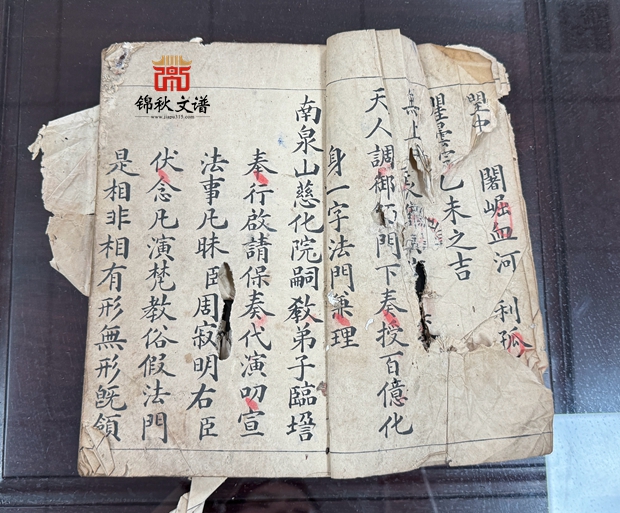 錦秋文谱
www.jianx315.com
闍崛血河 利孤
乙未之吉
無上
天人調御 門下奏授百億化
身一字法門兼理
南泉山慈化院嗣教弟子臨壇
奉行啟請保奏代演叨宣
法事凡昧臣周寂明右臣
伏念凡演梵教俗假法門
是相非相有形無形旣領